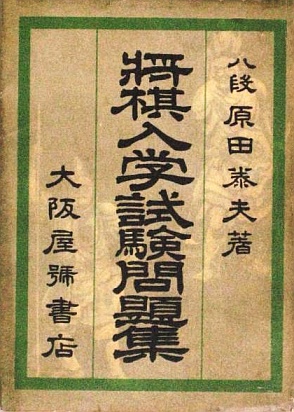 八段原田泰夫著
将棋入学試験問題集
大阪屋號書店